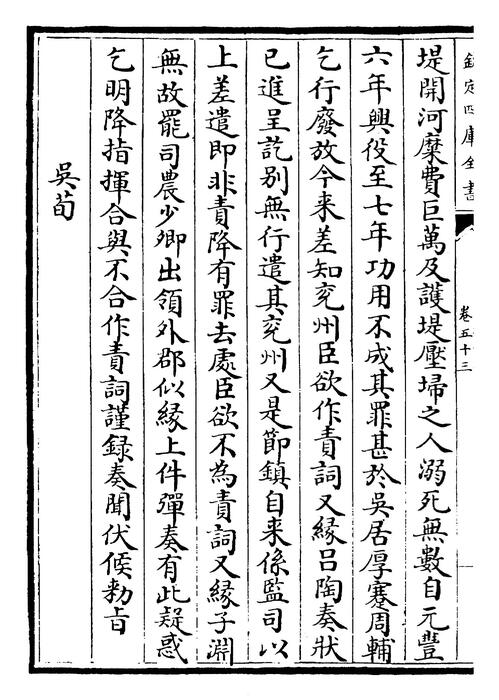 欽定四庫全書
卷五十三
堤開河糜費巨萬及護堤壓埽之人溺死無數自元豐
六年興役至七年功用不成其罪甚於吳居厚蹇周輔
乞行廢放今来差知兖州臣欲作責詞又緣吕陶奏狀
已進呈訖别無行遣其兖州又是節鎮自来係監司以
上差遣即非責降有罪去處臣欲不為責詞又緣子淵
無故罷司農少卿出領外郡似緣上件彈奏有此疑惑
乞明降指揮合與不合作責詞謹録奏聞伏候勅㫖
吳荀